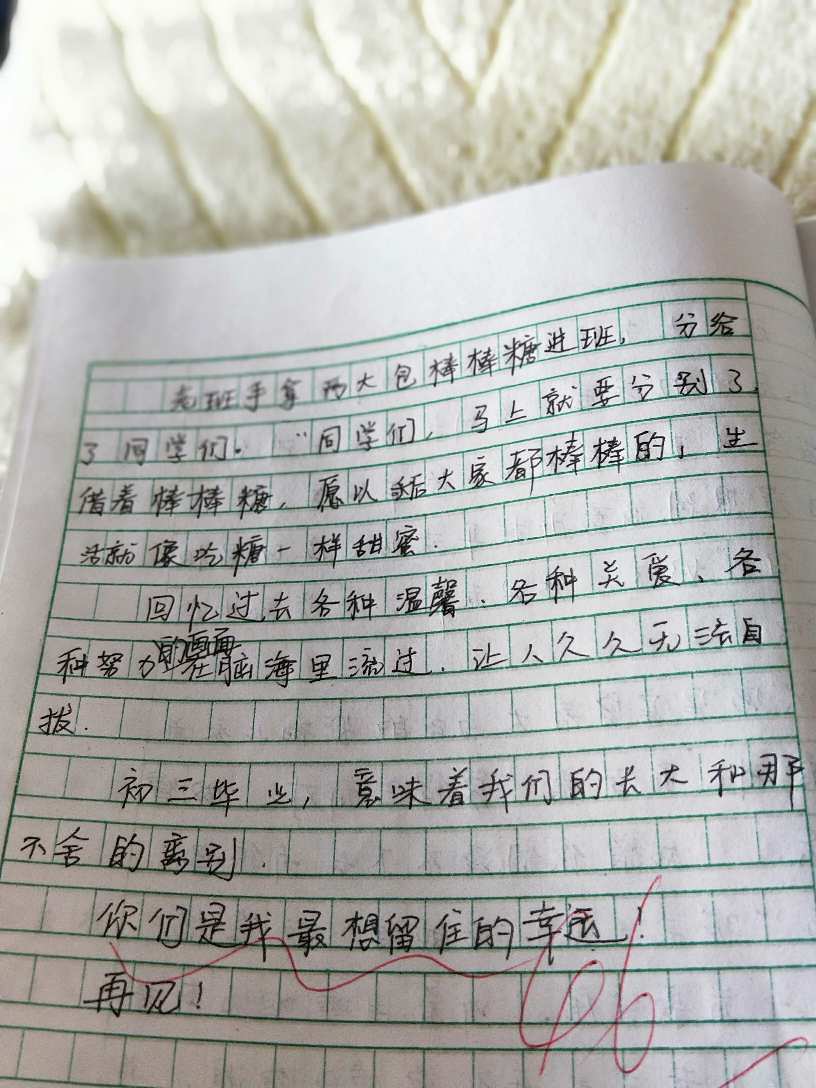 老班手拿两大包棒棒糖进班，分给
了同学们。“同学们，马上就要分别了，
借着棒棒糖，愿以后大家都棒棒的，生
活就像吃糖一样甜蜜.
回忆过去各种温馨、各种关爱、各
种努力的画面在脑海里流过.让人久久无法自
拔.
初三毕业，意味着我们的长大和那
不舍的离别.
你们是我最想留住的幸运！
再见！